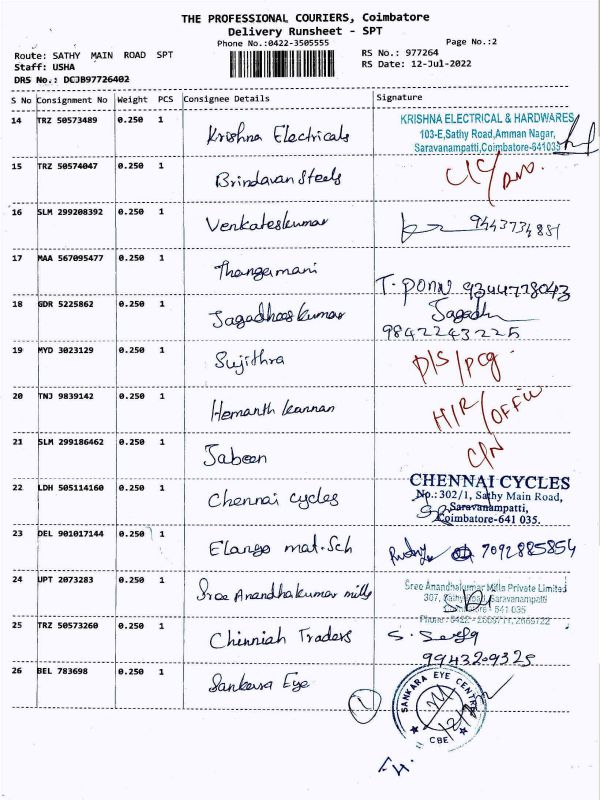 THE PROFESSIONAL COURIERS, Coimbatore
Delivery Runsheet - SPT
Phone No.:0422-3505555
Page No.:2
Route: SATHY MAIN ROAD SPT
RS No.: 977264
Staff: USHA
RS Date: 12-Jul-2022
DRS No.: DCJB97726402
S No Consignment No Weight PCS Consignee Details Signature
14 TRZ 50573489 0.250 1 Krishna Electricals
KRISHNA ELECTRICAL & HARDWARES
103-E,Sathy Road,Amman Nagar,
Saravanampatti,Coimbatore-641035
15 TRZ 50574047 0.250 1 Brindavan Steels
16 SLM 299208392 0.250 1 Venkateskumar 9443734881
17 MAA 567095477 0.250 1 Thangamani
T. Ponn 9344778043
18 GDR 5225862 0.250 1 Jagadhaskumar
9842243225
19 MYD 3023129 0.250 1 Sujithra D/S/pcg.
20 TNJ 9839142 0.250 1 Hemanth kannan H/R/OFFICE
21 SLM 299186462 0.250 1 Jabeen C/N
22 LDH 505114160 0.250 1 Chennai cycles
CHENNAI CYCLES
No.: 302/1, Sathy Main Road,
Saravanampatti,
Coimbatore-641 035.
23 DEL 901017144 0.250 1 Elango mat.Sch 7092885854
24 UPT 2073283 0.250 1 Sree Anandhakumar mills
Sree Anandhakumar Mills Private Limited
307, Sathy Road, Saravanampatti
Coimbatore - 641 035
25 TRZ 50573260 0.250 1 Chinniah Traders
9943209325
26 BEL 783698 0.250 1 Sankara Eye
SANKARA EYE CENTRE
CBE